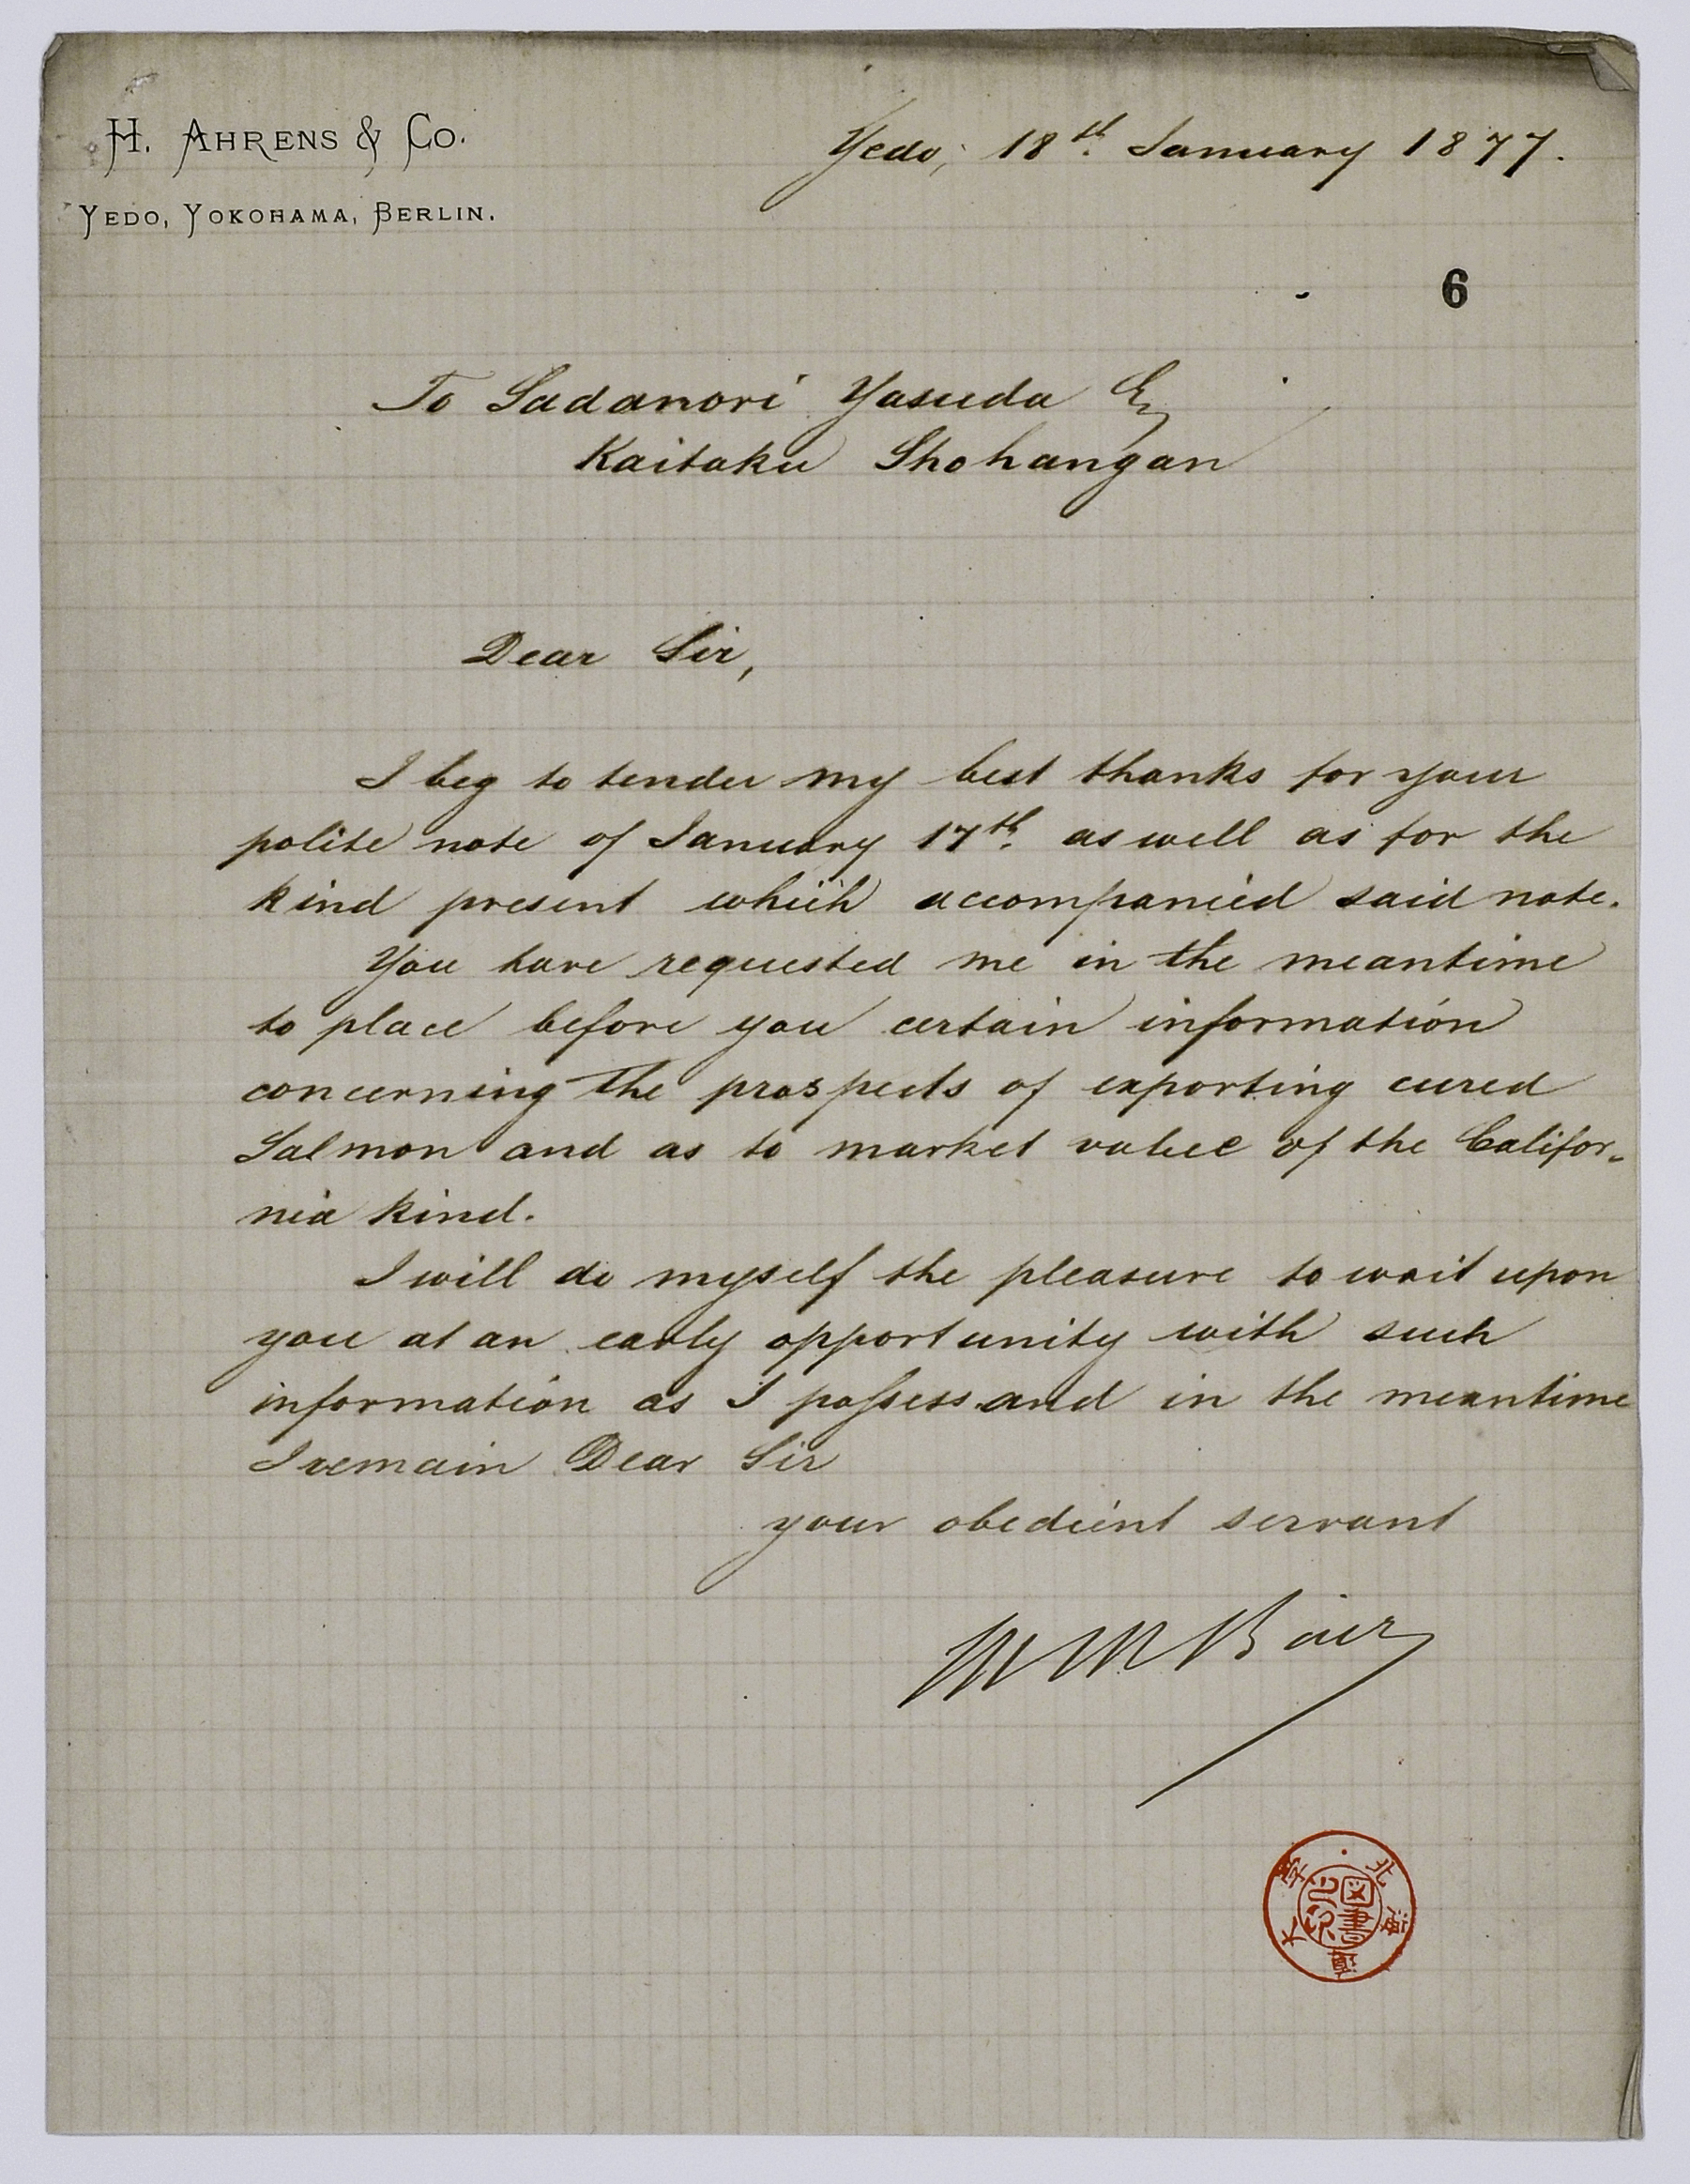 H. AHRENS & CO.
YEDO, YOKOHAMA, BERLIN.
Yedo, 18th. January 1877.
6
To Sadanori Yasuda Esq
Kaitaku Shohangan
Dear Sir,
I beg to tender my best thanks for your
polite note of January 17th. as well as for the
kind present which accompanied said note.
You have requested me in the meantime
to place before you certain information
concerning the prospects of exporting cured
Salmon and as to market value of the Califor-
nia kind.
I will do myself the pleasure to wait upon
you at an early opportunity with such
information as I possess and in the meantime
I remain Dear Sir
your obedient servant
M M Bair
北海道大学
図書